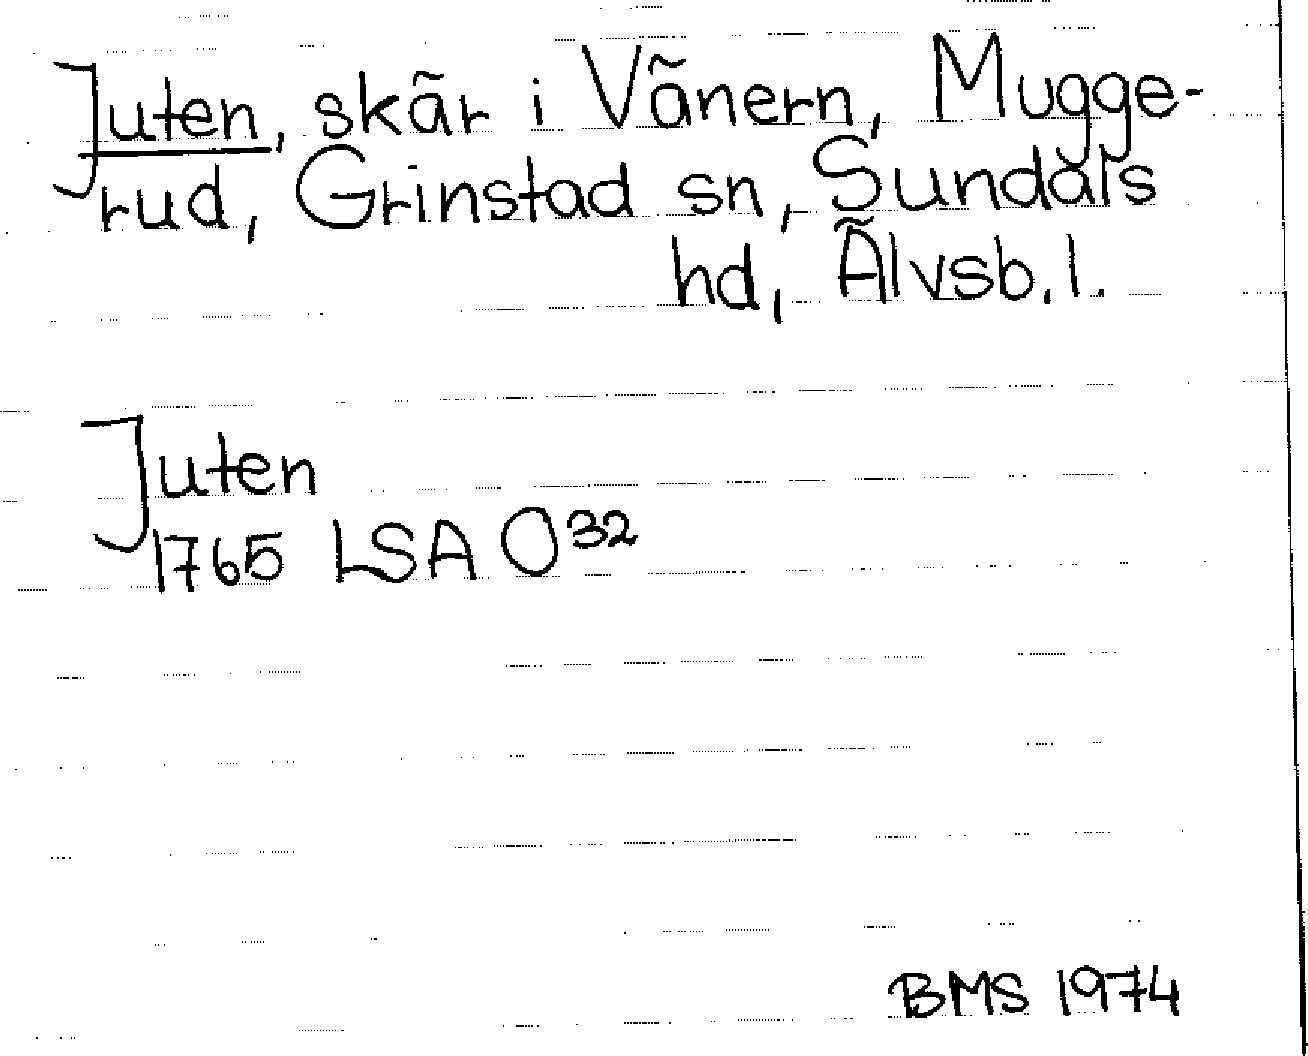 Juten, skär i Vänern, Mugge-
rud, Grinstad sn, Sundals
hd, Älvsb. l.
Juten
1765 LSA O32
BMS 1974